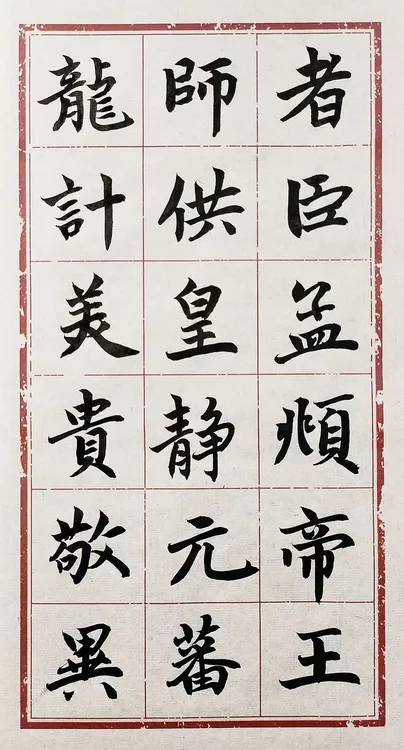 者臣孟頫帝王
師供皇静元蕃
龍計美貴敬異